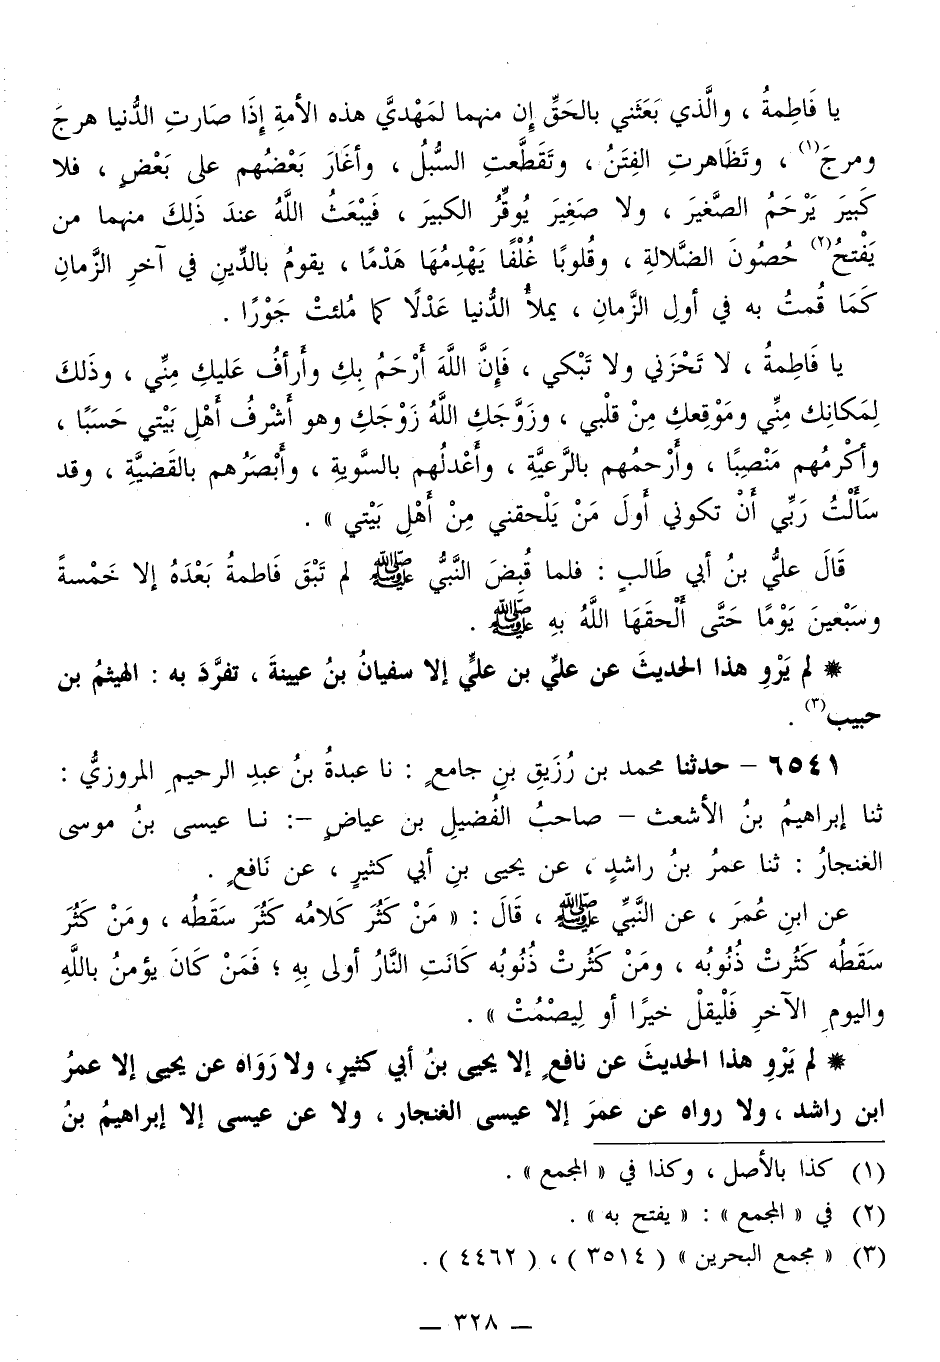 يا فَاطِمةُ ، والَّذي بَعَثَني بالحَقِّ إن منهما لمَهْديَّ هذه الأمةِ إذَا صَارتِ الدُّنيا هرجَ
ومرجَ(١) ، وتَظَاهرتِ الفِتَنُ ، وتَقَطَّعتِ السُّبُلُ ، وأغَارَ بَعْضُهم على بَعْضٍ ، فلا
كَبيرَ يَرْحَمُ الصَّغيرَ ، ولا صَغِيرَ يُوقِّرُ الكبيرَ ، فَيبْعَثُ اللَّهُ عندَ ذَلِكَ منهما من
يَفْتحُ(٢) حُصُونَ الضَّلالةِ ، وقُلوبًا غُلْفًا يَهْدِمُهَا هَدْمًا ، يقومُ بالدِّينِ في آخرِ الزَّمانِ
كَمَا قُمتُ به في أولِ الزَّمانِ ، يملأُ الدُّنيا عَدْلًا كما مُلئتْ جَوْرًا .
يا فَاطِمةُ ، لا تَحْزَني ولا تَبْكي ، فَإنَّ اللَّهَ أَرْحَمُ بِكِ وأَرأفُ عَليكِ مِنِّي ، وذَلكَ
لِمَكانِك مِنِّي ومَوْقِعكِ مِنْ قلْبي ، وزَوَّجَكِ اللَّهُ زَوْجَكِ وهو أَشْرفُ أَهْلِ بَيْتي حَسَبًا ،
وأكْرمُهم مَنْصِبًا ، وأَرْحمُهم بالرَّعيَّةِ ، وأَعْدلُهم بالسَّويةِ ، وأَبْصَرُهم بالقَضيَّةِ ، وقد
سَأَلْتُ رَبِّي أَنْ تكوني أَولَ مَنْ يَلْحقني مِنْ أَهْلِ بَيْتي » .
قَالَ عليُّ بنُ أبي طَالبٍ : فلما قُبِضَ النَّبيُّ ﷺ لم تَبْقَ فَاطمةُ بَعْدَهُ إلا خَمْسةً
وسَبْعينَ يَوْمًا حَتَّى أَلْحقَهَا اللَّهُ بهِ ﷺ .
* لم يَرْوِ هذا الحديثَ عن عليِّ بن عليٍّ إلا سفيانُ بنُ عيينةَ ، تفرَّدَ به : الهيثمُ بن
حبيب(٣) .
٦٥٤١ – حدثنا محمد بن رُزَيقِ بنِ جامعٍ : نا عبدةُ بنُ عبدِ الرحيمِ المروزيُّ :
ثنا إبراهيمُ بنُ الأشعث – صاحبُ الفُضيلِ بن عياضٍ –: نا عيسى بنُ موسى
الغنجارُ : ثنا عمرُ بنُ راشدٍ ، عن يحيى بنِ أبي كثيرٍ ، عن نَافعٍ .
عن ابنِ عُمرَ ، عن النَّبيِّ ﷺ ، قَالَ : « مَنْ كَثُرَ كَلامُه كَثُرَ سَقَطُه ، ومَنْ كَثُرَ
سَقَطُه كَثُرتْ ذُنُوبُه ، ومَنْ كَثُرتْ ذُنُوبُه كَانَتِ النَّارُ أولى بِهِ ؛ فَمَنْ كَانَ يؤمنُ باللَّهِ
واليومِ الآخرِ فَلْيقلْ خيرًا أو لِيصْمُتْ » .
* لم يَرْوِ هذا الحديثَ عن نافعٍ إلا يحيى بنُ أبي كثيرٍ، ولا رَوَاه عن يحيى إلا عمرُ
ابن راشد ، ولا رواه عن عمرَ إلا عيسى الغنجار ، ولا عن عيسى إلا إبراهيمُ بنُ
(١) كذا بالأصل ، وكذا في « المجمع » .
(٢) في « المجمع » : « يفتح به » .
(٣) « مجمع البحرين » ( ٣٥١٤ ) ، ( ٤٤٦٢ ) .
— ٣٢٨ —